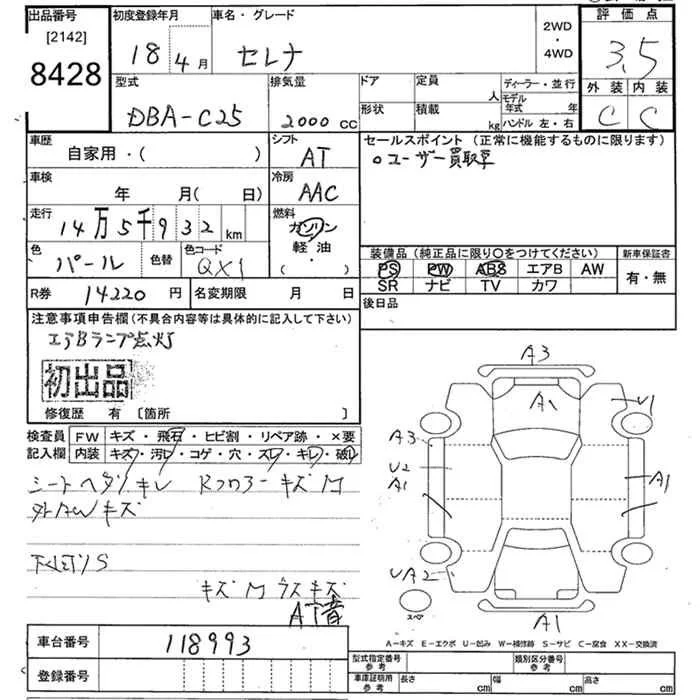 出品番号 初度登録年月 車名・グレード 2WD・4WD 評価点
[2142]
8428 18年4月 セレナ 3.5
型式 排気量 ドア 定員 人 ディーラー・並行 外装 内装
DBA-C25 2000cc 形状 積載 kg モデル年式 年 C C
ハンドル 左・右
車歴 シフト セールスポイント (正常に機能するものに限ります)
自家用・( ) AT ○ユーザー買取車
車検 冷房
年 月(日) AAC
走行 燃料
14万5千932km ガソリン
軽・油
・( )
色 色替 色コード 装備品 (純正品に限り○をつけてください) 新車保証書
パール QX1 PS PW ABS エアB AW 有・無
SR ナビ TV カワ
R券 14220円 名変期限 月 日 後日品
注意事項申告欄(不具合内容等は具体的に記入して下さい)
エアBランプ点灯
初出品
修復歴 有 [箇所 ]
検査員 FW キズ・飛石・ヒビ割・リペア跡・×要
記入欄 内装 キズ・汚レ・コゲ・穴・スレ・キレ・破レ
シートヘタリキレ キズM
外AWキズ
下廻りS
キズM ウスキズ
AT音
A3
A1
U1
A3
U2
A1
A1
UA2
A1
スペア
A-キズ E-エクボ U-凹み W-補修跡 S-サビ C-腐食 XX-交換済
車台番号 118993
登録番号
型式指定番号 参考 類別区分番号 参考
車庫証明用 参考 長さ cm 幅 cm 高さ cm